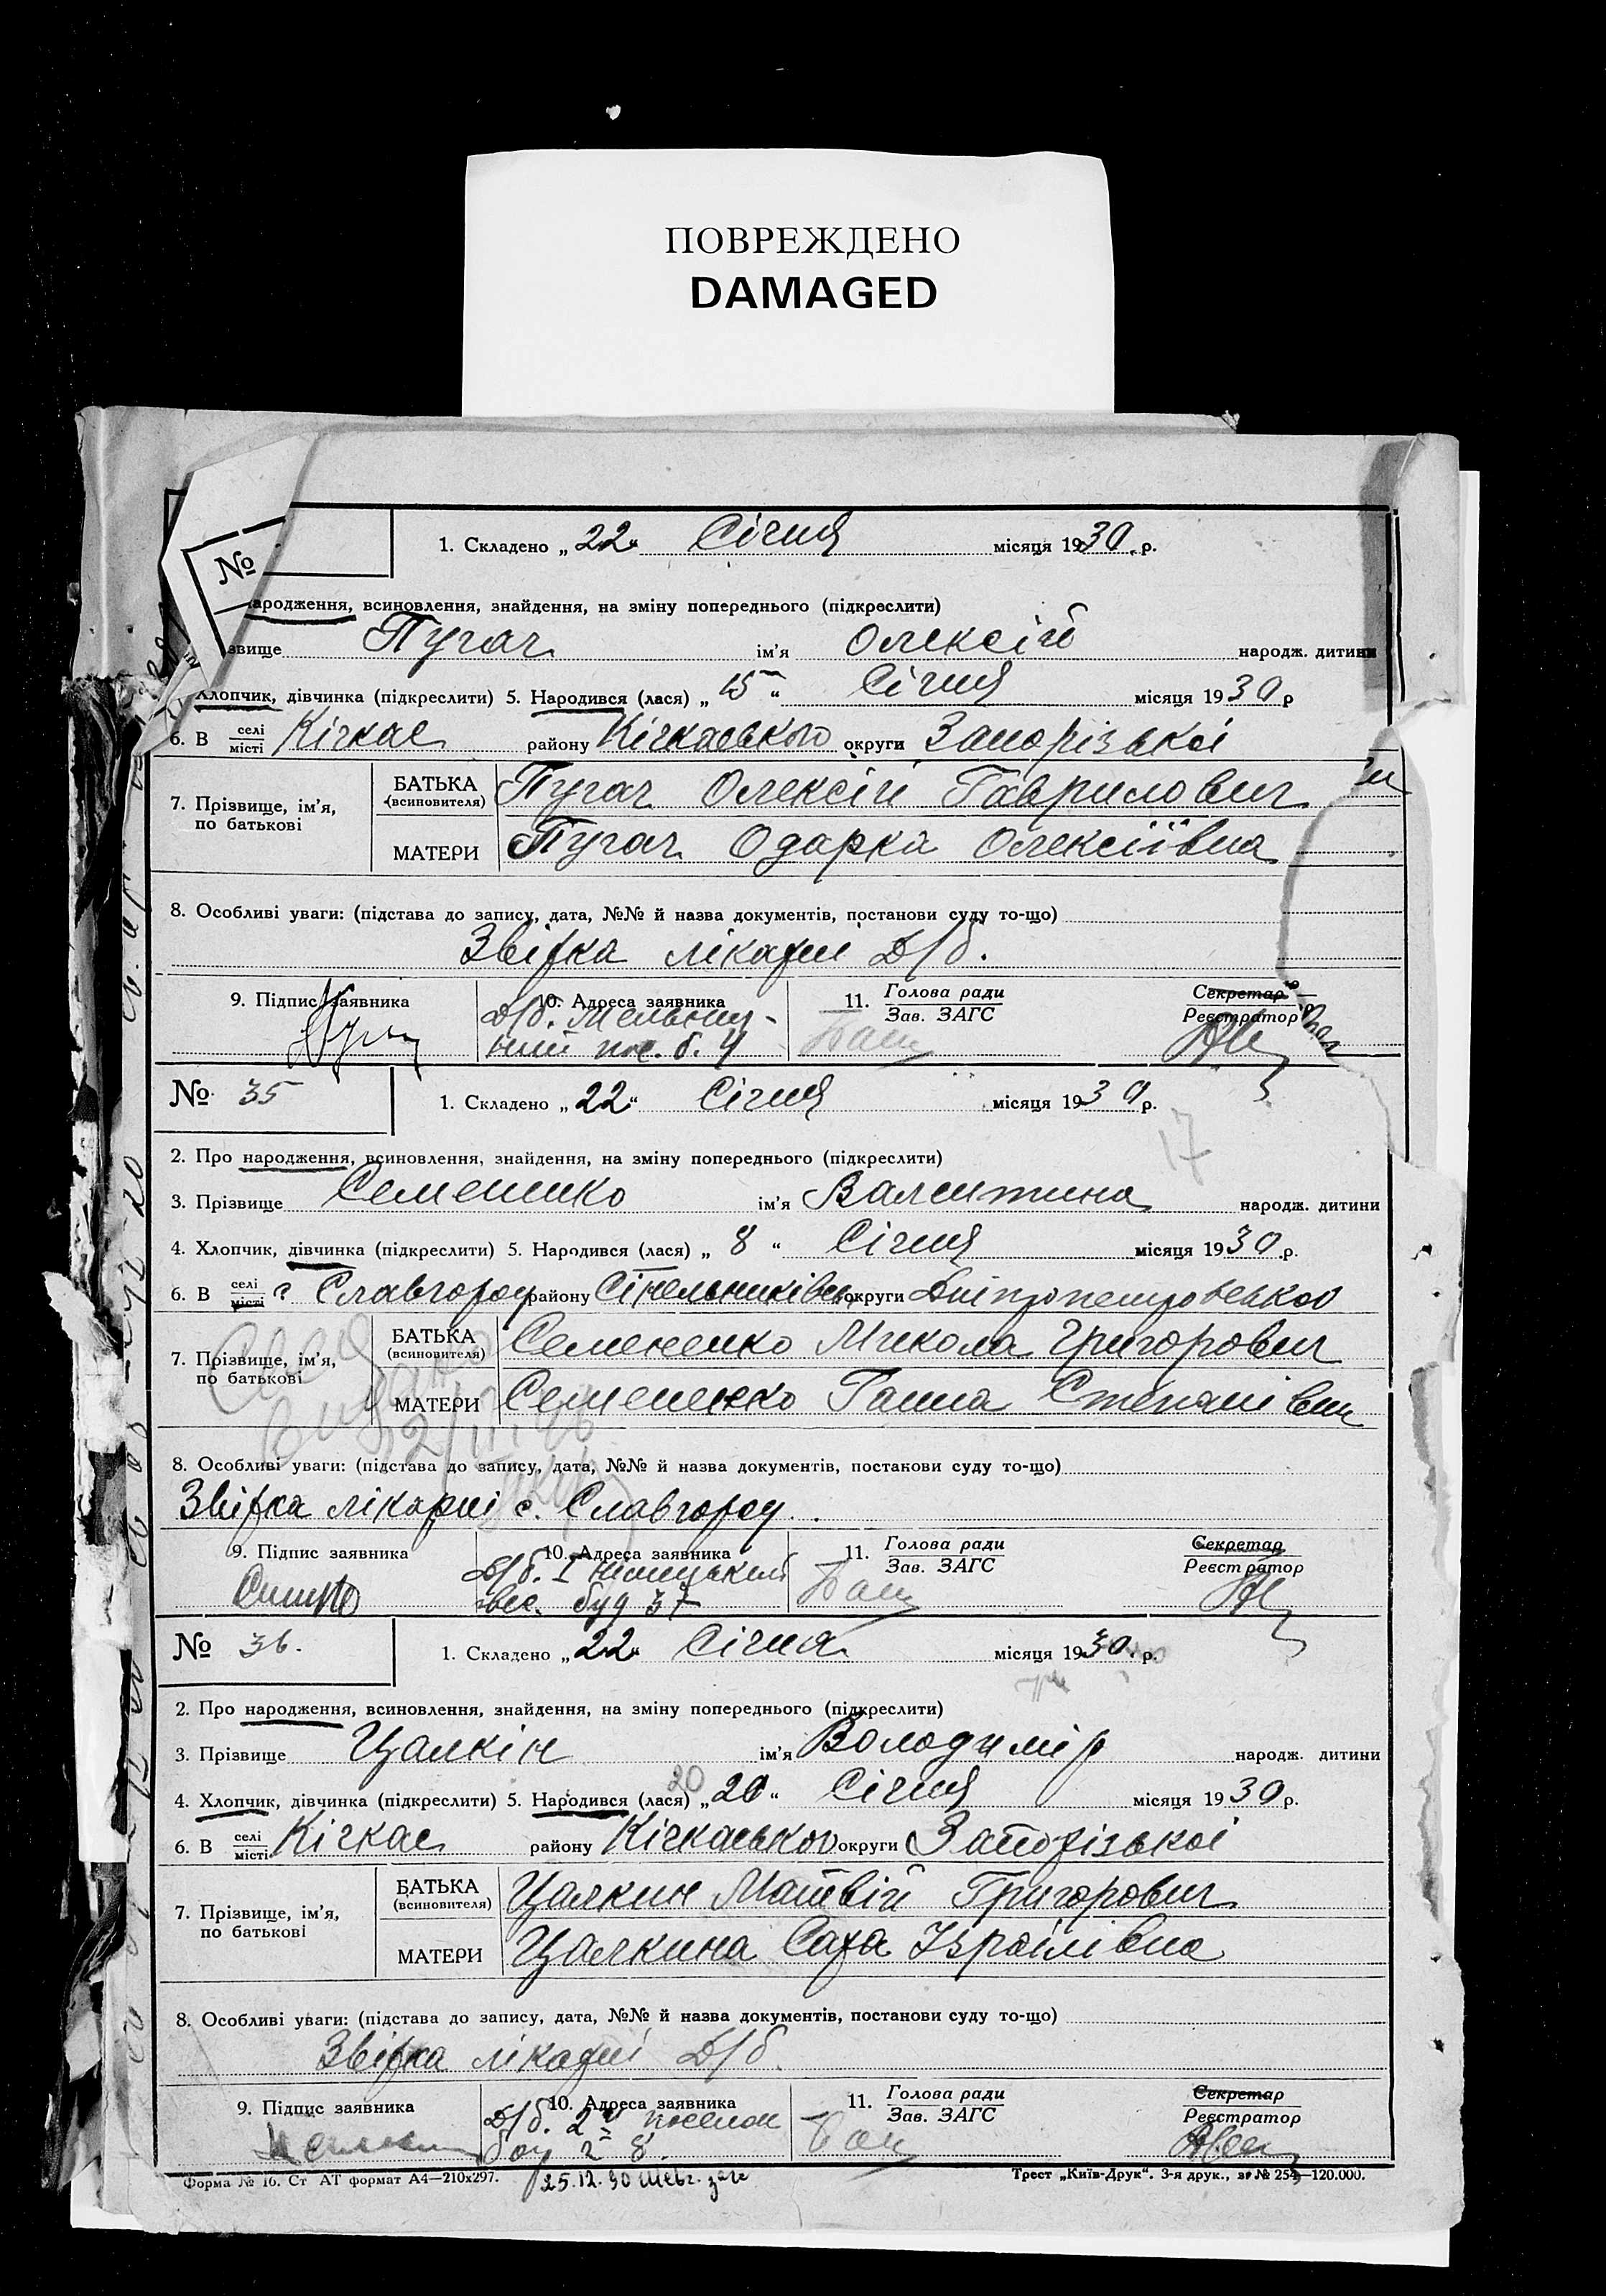 ПОВРЕЖДЕНО
DAMAGED
№
1. Складено „22“ Січня місяця 1930 р.
ародження, всиновлення, знайдення, на зміну попереднього (підкреслити)
звище Пугач ім’я Олексій народж. дитини
Хлопчик, дівчинка (підкреслити) 5. Народився (лася) „15“ Січня місяця 1930 р
6. В селі місті Кічкас району Кічкаського округи Запорізької
7. Прізвище, ім’я, по батькові
БАТЬКА (всиновителя) Пугач Олексій Гаврилович
МАТЕРИ Пугач Одарка Олексіївна
8. Особливі уваги: (підстава до запису, дата, №№ й назва документів, постанови суду то-що)
Звірка лікарні Д/б.
9. Підпис заявника 10. Адреса заявника 11. Голова ради Зав. ЗАГС Секретар Реєстратор
Д/б.
пос. б. 4
№ 35 1. Складено „22“ Січня місяця 1930 р.
17
2. Про народження, всиновлення, знайдення, на зміну попереднього (підкреслити)
3. Прізвище Семененко ім’я Валентина народж. дитини
4. Хлопчик, дівчинка (підкреслити) 5. Народився (лася) „8“ Січня місяця 1930 р.
6. В селі місті с Славгород району Сінельниківськ округи Дніпропетровської
7. Прізвище, ім’я, по батькові
БАТЬКА (всиновителя) Семененко Микола Григорович
МАТЕРИ Семененко Ганна Степанівна
8. Особливі уваги: (підстава до запису, дата, №№ й назва документів, постанови суду то-що)
Звірка лікарні с. Славгород.
9. Підпис заявника 10. Адреса заявника 11. Голова ради Зав. ЗАГС Секретар Реєстратор
Д/б. I
буд 37
№ 36. 1. Складено „22“ Січня місяця 1930. р.
2. Про народження, всиновлення, знайдення, на зміну попереднього (підкреслити)
3. Прізвище Цалкін ім’я Володимір народж. дитини
20
4. Хлопчик, дівчинка (підкреслити) 5. Народився (лася) „20“ Січня місяця 1930 р.
6. В селі місті Кічкас району Кічкаського округи Запорізької
7. Прізвище, ім’я, по батькові
БАТЬКА (всиновителя) Цалкин Матвій Григорович
МАТЕРИ Цалкина Сара Ізраілівна
8. Особливі уваги: (підстава до запису, дата, №№ й назва документів, постанови суду то-що)
Звірка лікарні Д/б.
9. Підпис заявника 10. Адреса заявника 11. Голова ради Зав. ЗАГС Секретар Реєстратор
Д/б. 2й
8.
Форма № 16. Ст АТ формат А4—210х297. 25.12.90 Трест „Київ-Друк“. 3-я друк., зв № 254—120.000.